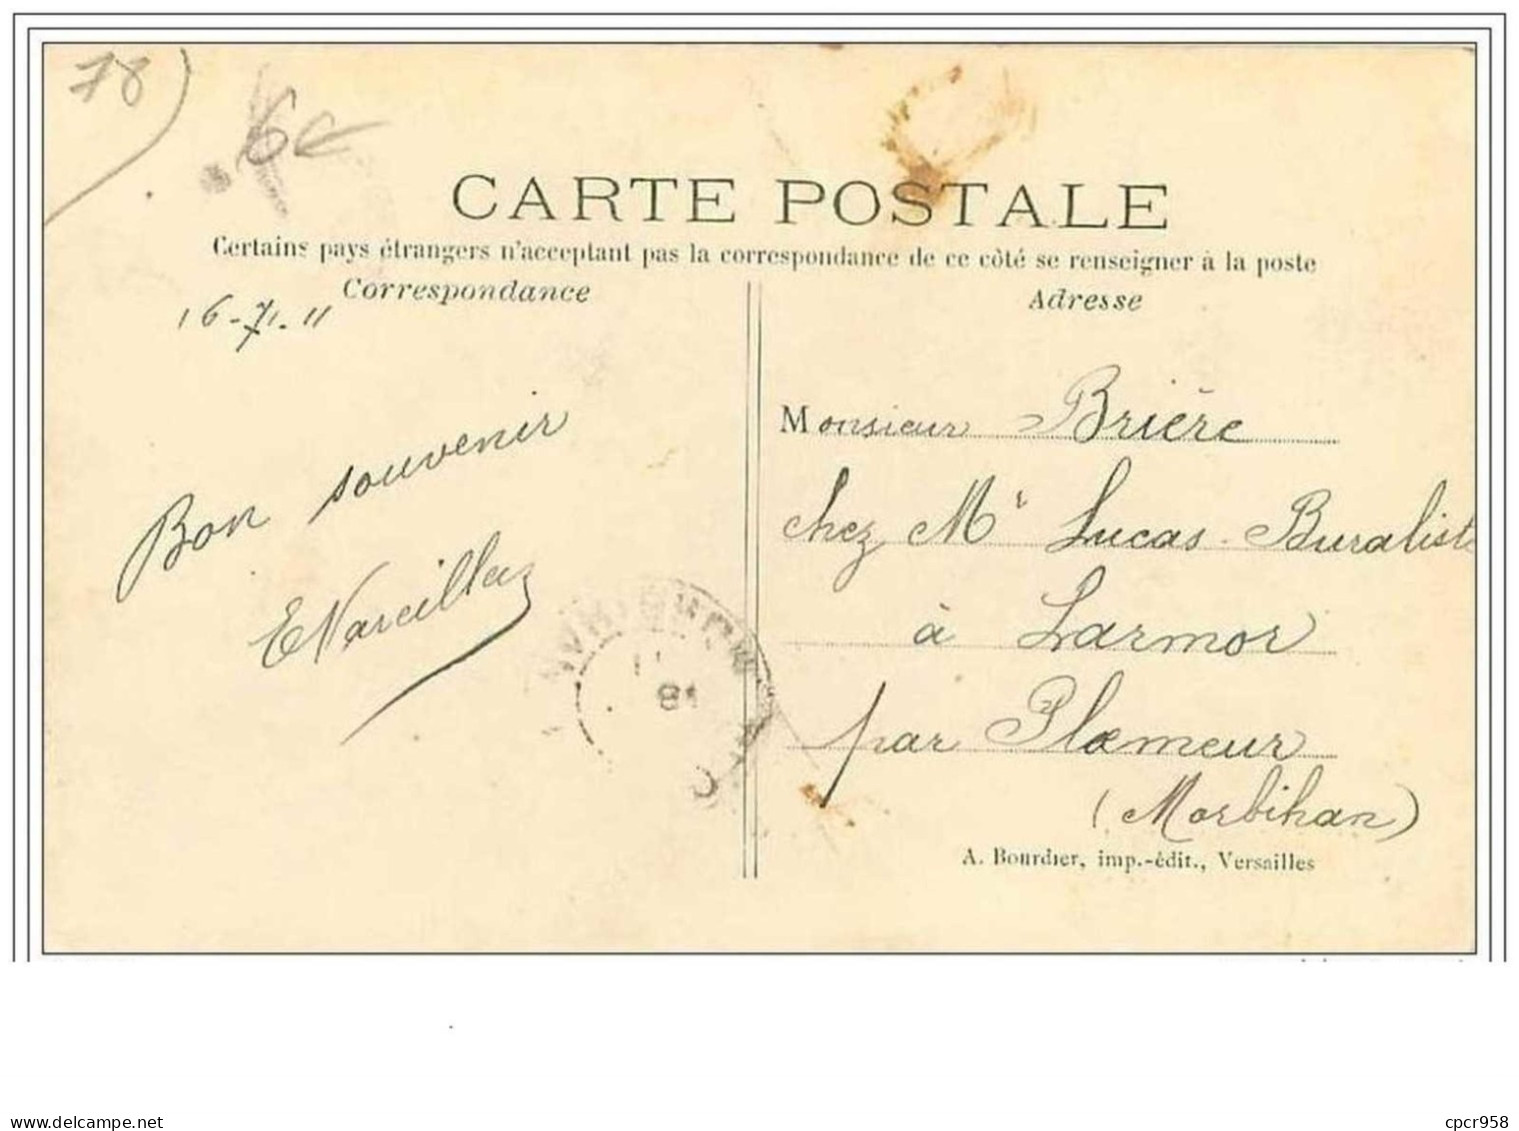 78)
6€
CARTE POSTALE
Certains pays étrangers n'acceptant pas la correspondance de ce côté se renseigner à la poste
Correspondance
Adresse
16-7-11
Bon souvenir
Monsieur Brière
chez Mr Lucas Buraliste
à Larmor
par Plœmeur
(Morbihan)
A. Bourdier, imp.-édit., Versailles
www.delcampe.net
cpcr958